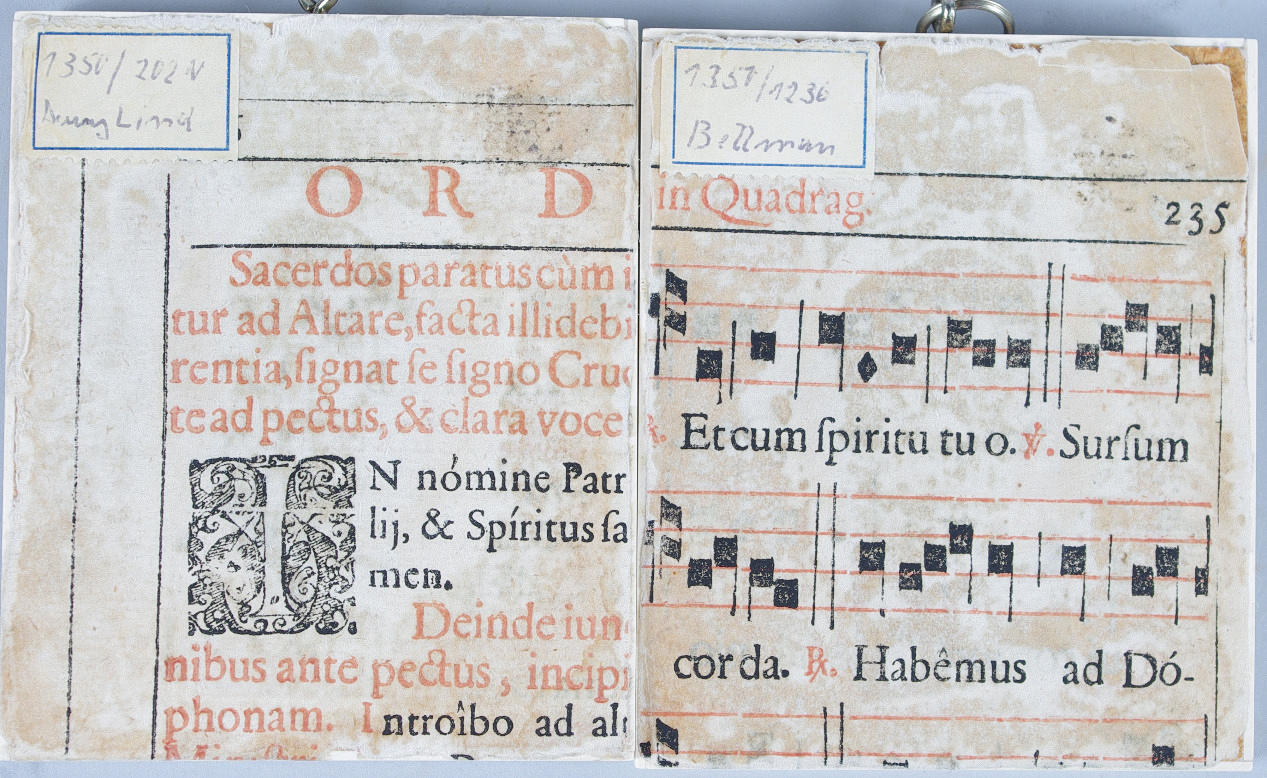 1350/202N
O R D
Sacerdos paratus cùm i
tur ad Altare, facta illi debi
rentia, ſignat ſe ſigno Cruc
te ad pectus, & clara voce
IN nómine Patr
lij, & Spíritus ſa
men.
Deinde iun
nibus ante pectus, incipi
phonam. Introîbo ad alt
1351/1236
Bellman
in Quadrag.
235
℟. Et cum ſpiritu tu o. ℣. Surſum
cor da. ℟. Habêmus ad Dó-